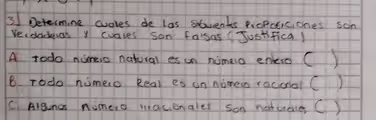 3) Determine cuales de las siguientes Proposiciones son
Verdaderas y cuales son Falsas (Justifica)
A Todo número natural es un número entero ( )
B. Todo número Real es un número racional ( )
C. Algunos números irracionales son naturales ( )